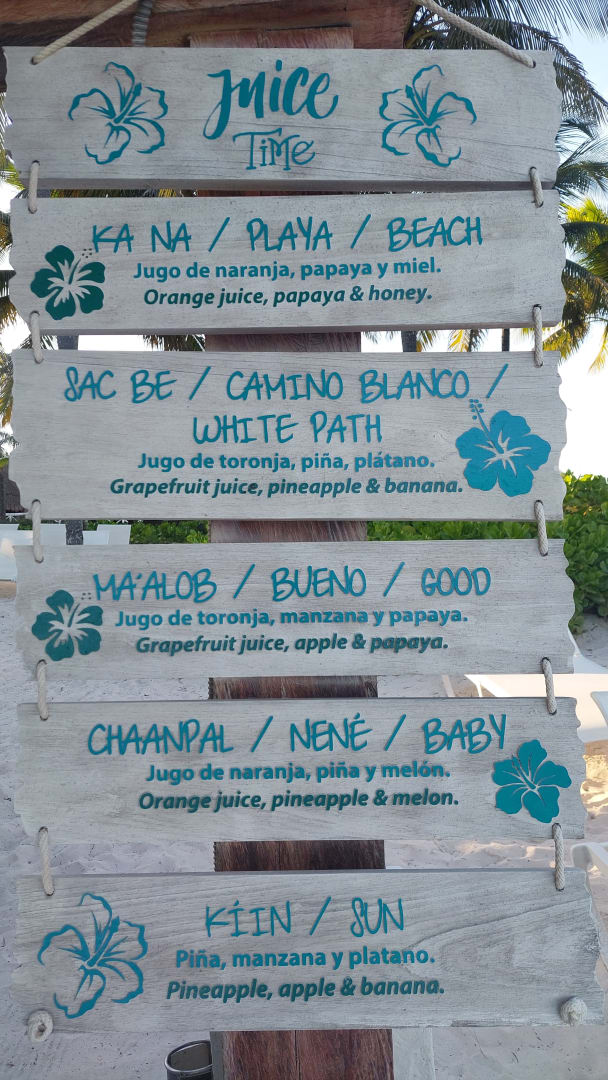 Juice
Time
KA NA / PLAYA / BEACH
Jugo de naranja, papaya y miel.
Orange juice, papaya & honey.
SAC BE / CAMINO BLANCO /
WHITE PATH
Jugo de toronja, piña, plátano.
Grapefruit juice, pineapple & banana.
MA´ALOB / BUENO / GOOD
Jugo de toronja, manzana y papaya.
Grapefruit juice, apple & papaya.
CHAANPAL / NENÉ / BABY
Jugo de naranja, piña y melón.
Orange juice, pineapple & melon.
KÍIN / SUN
Piña, manzana y platano.
Pineapple, apple & banana.